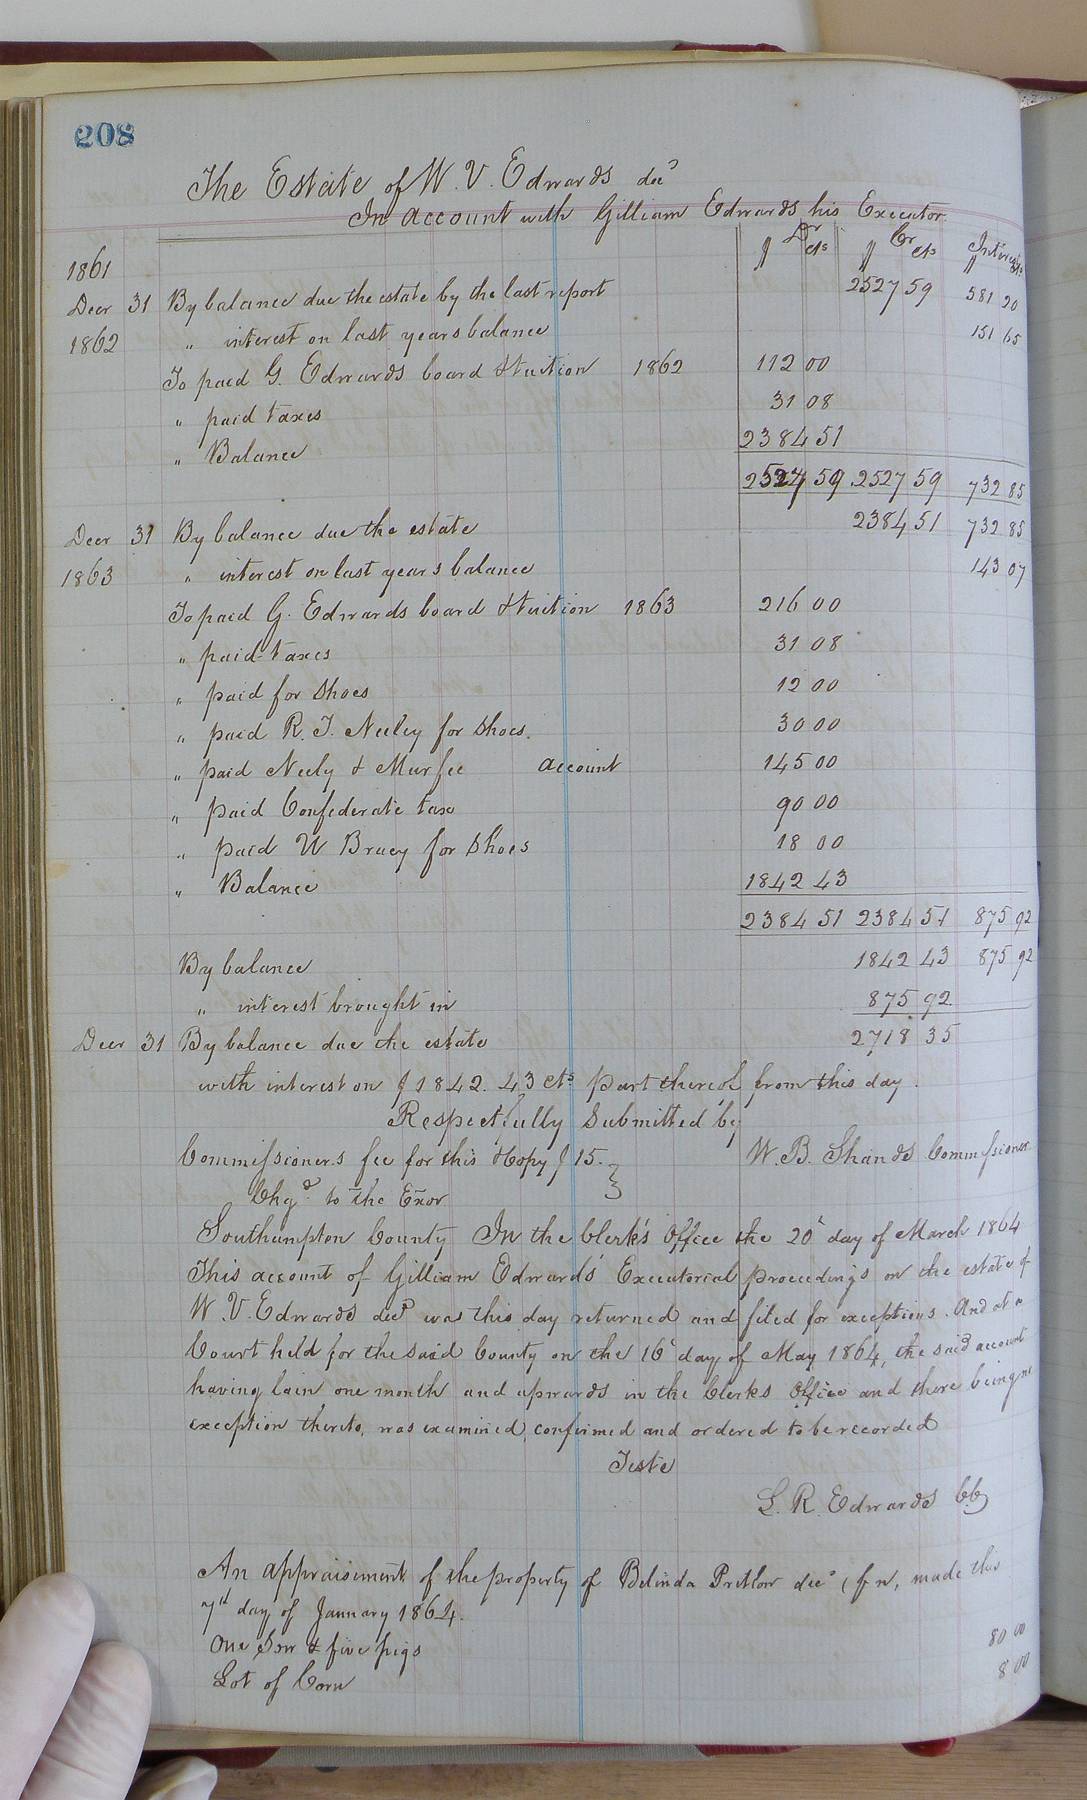 208
The Estate of W. V. Edwards decd
In account with Gilliam Edwards his Executor
$ Dr cts $ Cr cts Interest $ cts
1861
Decr 31 By balance due the estate by the last report 2527 59 581 20
1862 " interest on last years balance 151 65
To paid G. Edwards board & tuition 1862 112 00
" paid taxes 31 08
" Balance 2384 51
2527 59 2527 59 732 85
Decr 31 By balance due the estate 2384 51 732 85
1863 " interest on last years balance 143 07
To paid G. Edwards board & tuition 1863 216 00
" paid taxes 31 08
" paid for Shoes 12 00
" paid R. T. Neeley for Shoes. 30 00
" paid Neely & Murfee account 145 00
" paid Confederate tax 90 00
" paid W Bracy for Shoes 18 00
" Balance 1842 43
2384 51 2384 51 875 92
By balance 1842 43 875 92
" interest brought in 875 92
Decr 31 By balance due the estate 2718 35
with interest on $1842. 43 cts part thereof from this day.
Respectfully Submitted by
Commissioners fee for this & Copy $15. W. B. Shands Commissioner
Chgd to the Exor
Southampton County In the Clerk's Office the 20th day of March 1864
This account of Gilliam Edwards' Executorial proceedings on the estate of
W. V. Edwards decd was this day returned and filed for exceptions. And at a
Court held for the said County on the 16th day of May 1864, the said account
having lain one month and upwards in the Clerks Office and there being no
exception thereto, was examined, confirmed and ordered to be recorded
Teste
L. R. Edwards CC
An appraisement of the property of Belinda Pretlow decd (f n, made this
7th day of January 1864.
One Sow & five pigs 80 00
Lot of Corn 8 00